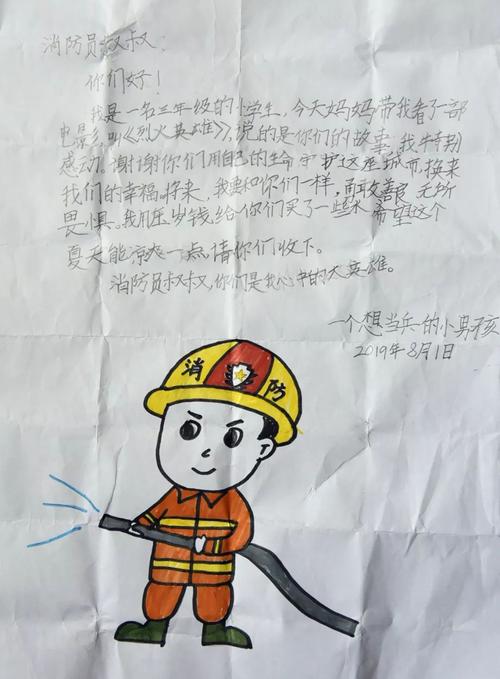 消防员叔叔:
你们好!
我是一名三年级的小学生,今天妈妈带我看了一部
电影,叫《烈火英雄》,说的是你们的故事,我特别
感动。谢谢你们用自己的生命守护这座城市,换来
我们的幸福。将来,我要和你们一样,勇敢善良,无所
畏惧。我用压岁钱给你们买了一些水,希望这个
夏天能凉爽一点,请你们收下。
消防员叔叔,你们是我心中的大英雄。
一个想当兵的小男孩
2019年8月1日
消 防